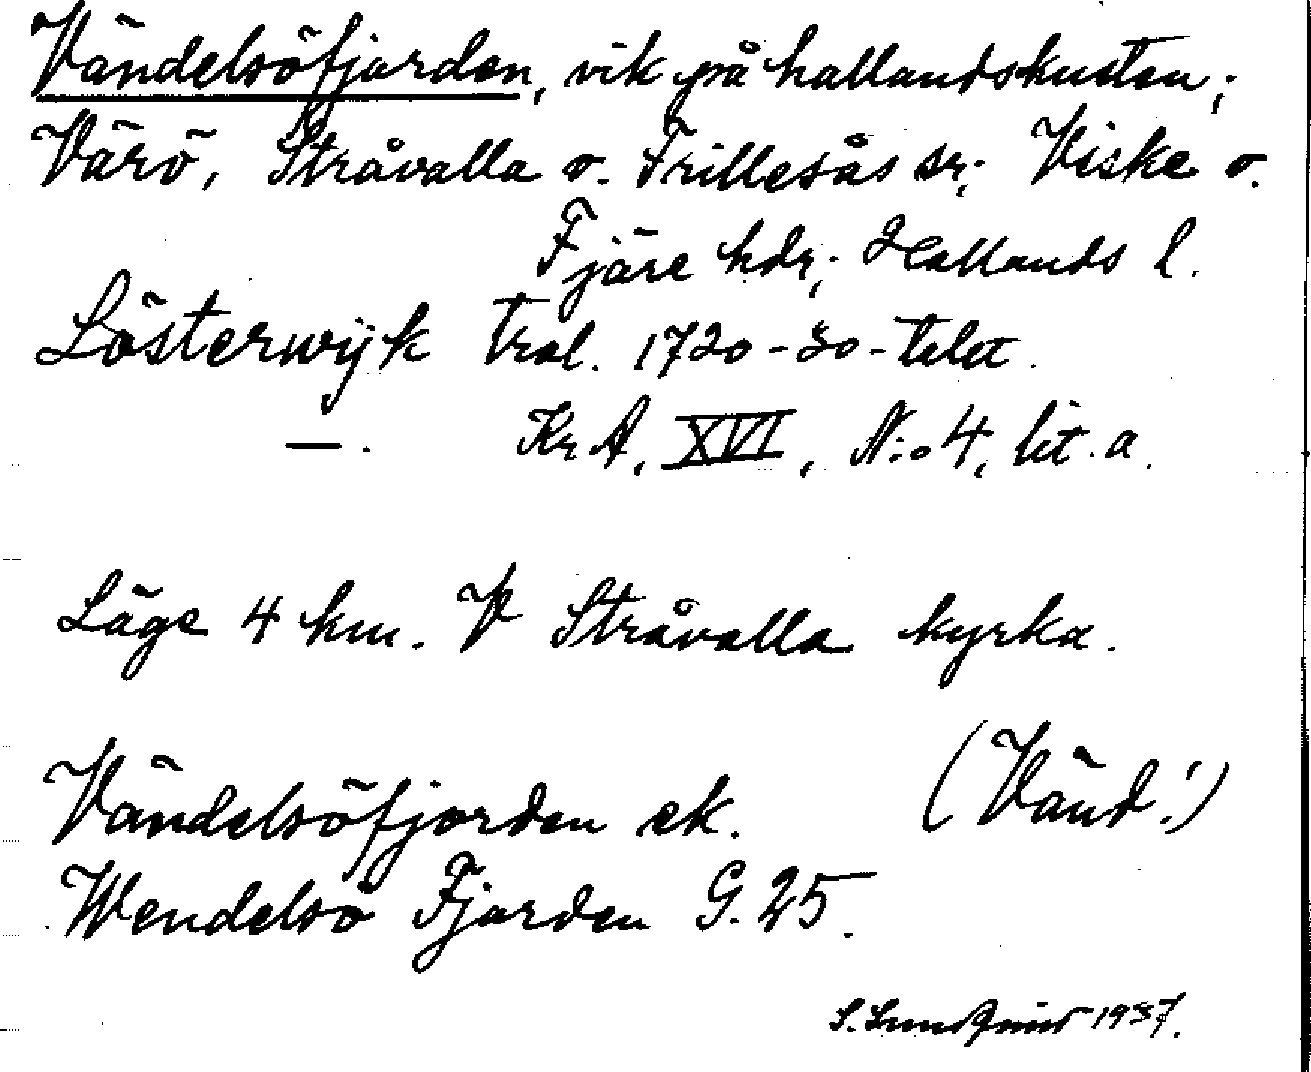 Vändelsöfjorden, vik på hallandskusten;
Värö, Stråvalla o. Frillesås sr; Viske o.
Fjäre hdr; Hallands l.
Lösterwijk trol. 1720-30-talet.
—. Kr A, XVI, N:o 4, lit. a.
Läge 4 km. V Stråvalla kyrka.
Vändelsöfjorden ek. (Vänd!)
Wendelsö Fjorden G. 25.
1937.